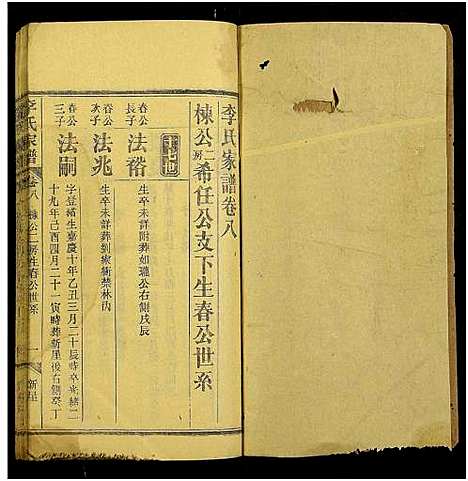 李氏家譜卷八
棟公二房希任公支下生春公世系
十七世
春公長子 法裕
生卒未詳附葬如瓏公右側戌辰
春公次子 法兆
生卒未詳葬劉家衕禁林內
春公三子 法嗣
字登緒生嘉慶十年乙丑三月二十辰時卒光緒二
十九年己酉四月二十一寅時葬新屋後右側癸丁
李氏家譜 卷八 棟公二房生春公世系 一 新屋